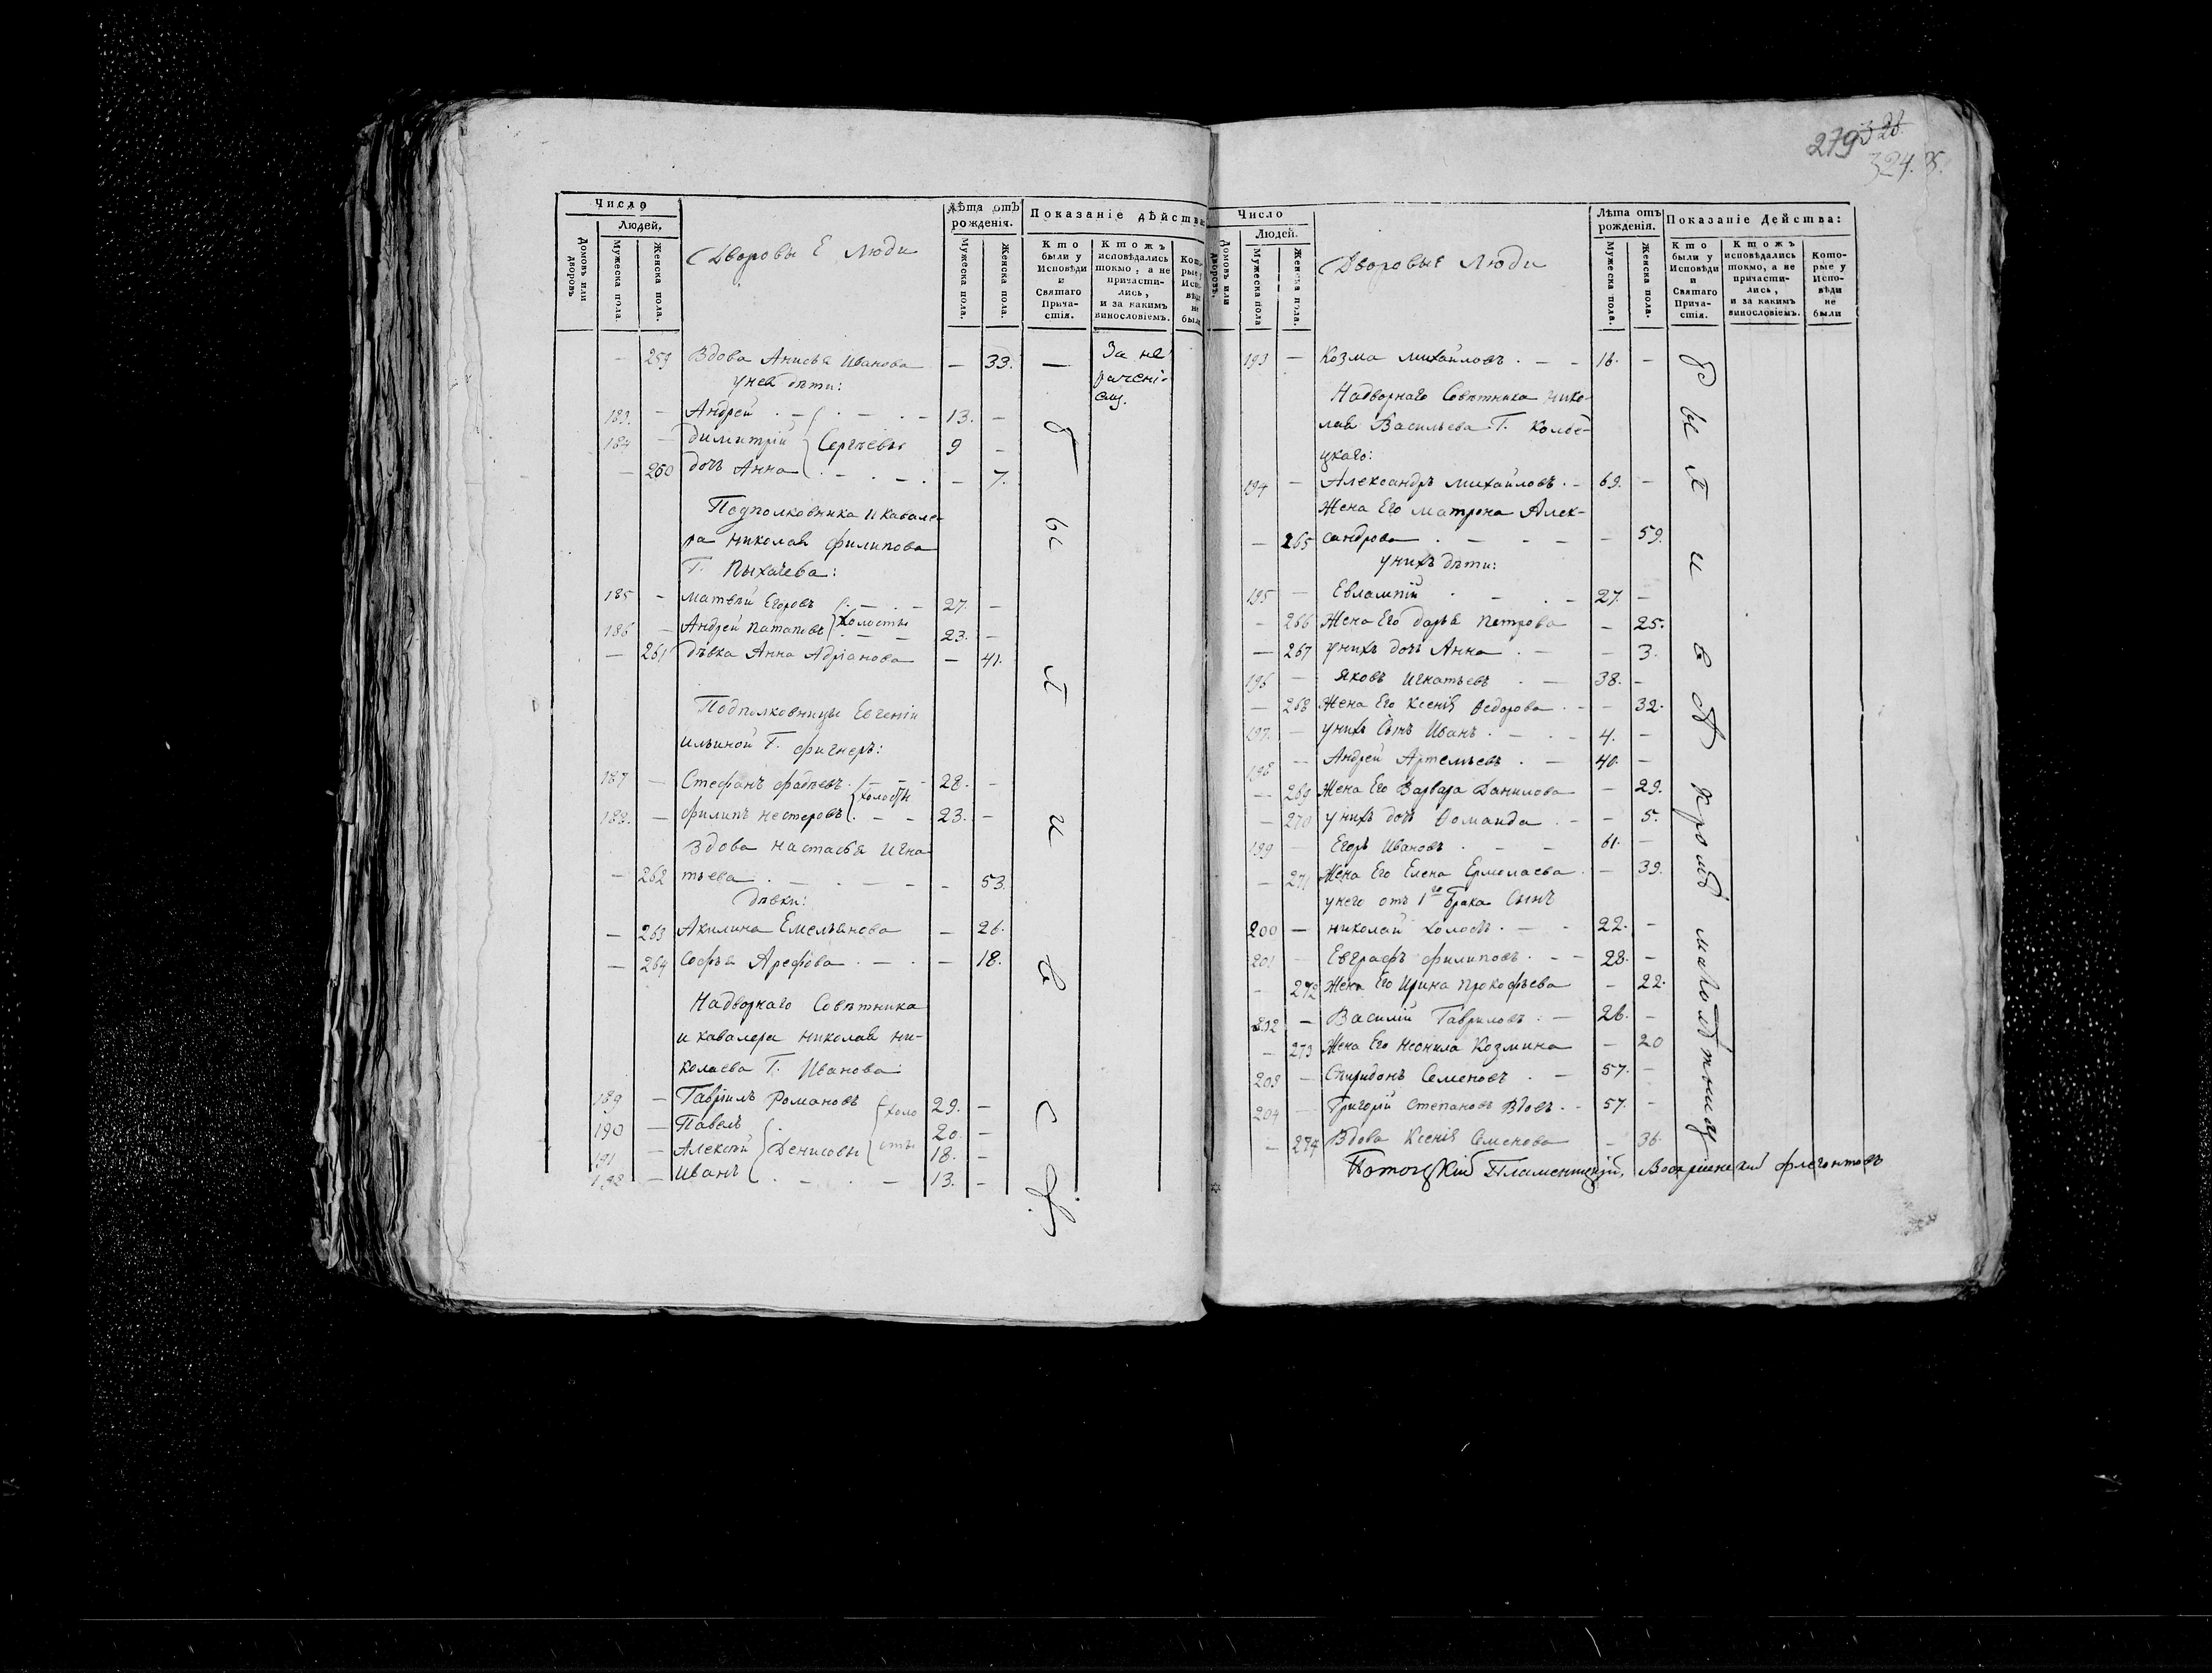 279 323.
324. 
Число
Людей.
Домовъ или дворовъ
Мужеска пола.
Женска пола.
Дворовые Люди
Лѣта отъ рожденія.
Мужеска пола.
Женска пола.
Показаніе дѣйства
Кто были у Исповѣди и Святаго Прича- стія.
Ктожъ исповѣдались токмо, а не причасти- лись, и за какимъ винословіемъ.
Кото- рые у Испо- вѣди не были
— 259 Вдова Анисья Иванова — 33. — За не
у нея дѣти: рачені-
емъ.
183. — Андрей 13. —
184 — Димитрій Сергѣевы 9 —
— 260 дочь Анна — 7.
Подполковника и кавале-
ра Николая Филипова
Г. Пыхачева:
185 — Матвѣй Егоровъ 27. —
холосты
186 — Андрей Патаповъ 23. —
— 261 дѣвка Анна Адріанова — 41.
Подполковницы Евгеніи
Ильиной Г. Фигнеръ:
187 — Стефанъ Фадѣевъ 28. —
холосты
188. — Филипъ Нестеровъ 23. —
Вдова Настасья Игна-
— 262 тьева — 53.
Дѣвки:
— 263 Акилина Емельянова — 26.
— 264 Софья Арефьева — 18.
Надворнаго Совѣтника
и кавалера Николая Ни-
колаева Г. Иванова
189 — Гавріилъ Романовъ холо 29. —
190 — Павелъ 20. —
191 — Алексѣй Денисовы сты 18. —
192 — Иванъ 13. —
б ы л и в с ѣ.
Число
Людей.
Домовъ или дворовъ.
Мужеска пола
Женска пола.
Дворовые Люди
Лѣта отъ рожденія.
Мужеска пола.
Женска пола.
Показаніе Действа:
Кто были у Исповѣди и Святаго Прича- стія.
Ктожъ исповѣдались токмо, а не причасти- лись, и за какимъ винословіемъ.
Кото- рые у Испо- вѣди не были
193 — Козма Михайловъ 16. —
Надворнаго Совѣтника Нико-
лая Васильева Г.
цкаго:
194 — Александръ Михайловъ 69. —
Жена Его Матрона Алек-
— 265 сандрова — 59.
у нихъ дѣти:
195 — Евлампій 27. —
— 266 Жена Его Дарья Петрова — 25.
— 267 у нихъ дочь Анна — 3.
196 — Яковъ Игнатьевъ 38. —
— 268 Жена Его Ксенія Ѳедорова — 32.
197. — у нихъ Сынъ Иванъ 4. —
198 — Андрей Артемьевъ 40. —
— 269 Жена Его Варвара Данилова — 29.
— 270 у нихъ дочь Ѳомаида — 5.
199 — Егоръ Ивановъ 61. —
— 271 Жена Его Елена Ермолаева — 39.
у него отъ 1го брака Сынъ
200 — Николай холостъ 22. —
201 — Евграфъ Филиповъ 28. —
— 272 Жена Его Ирина Прокофьева — 22.
202 — Василій Гавриловъ 26. —
— 273 Жена Его Неонила Козмина — 20
203 — Спиридонъ Семеновъ 57. —
204 — Григорій Степановъ Вдовъ 57. —
— 274 Вдова Ксенія Семенова — 36.
б ы л и в с ѣ кромѣ малолѣтныхъ